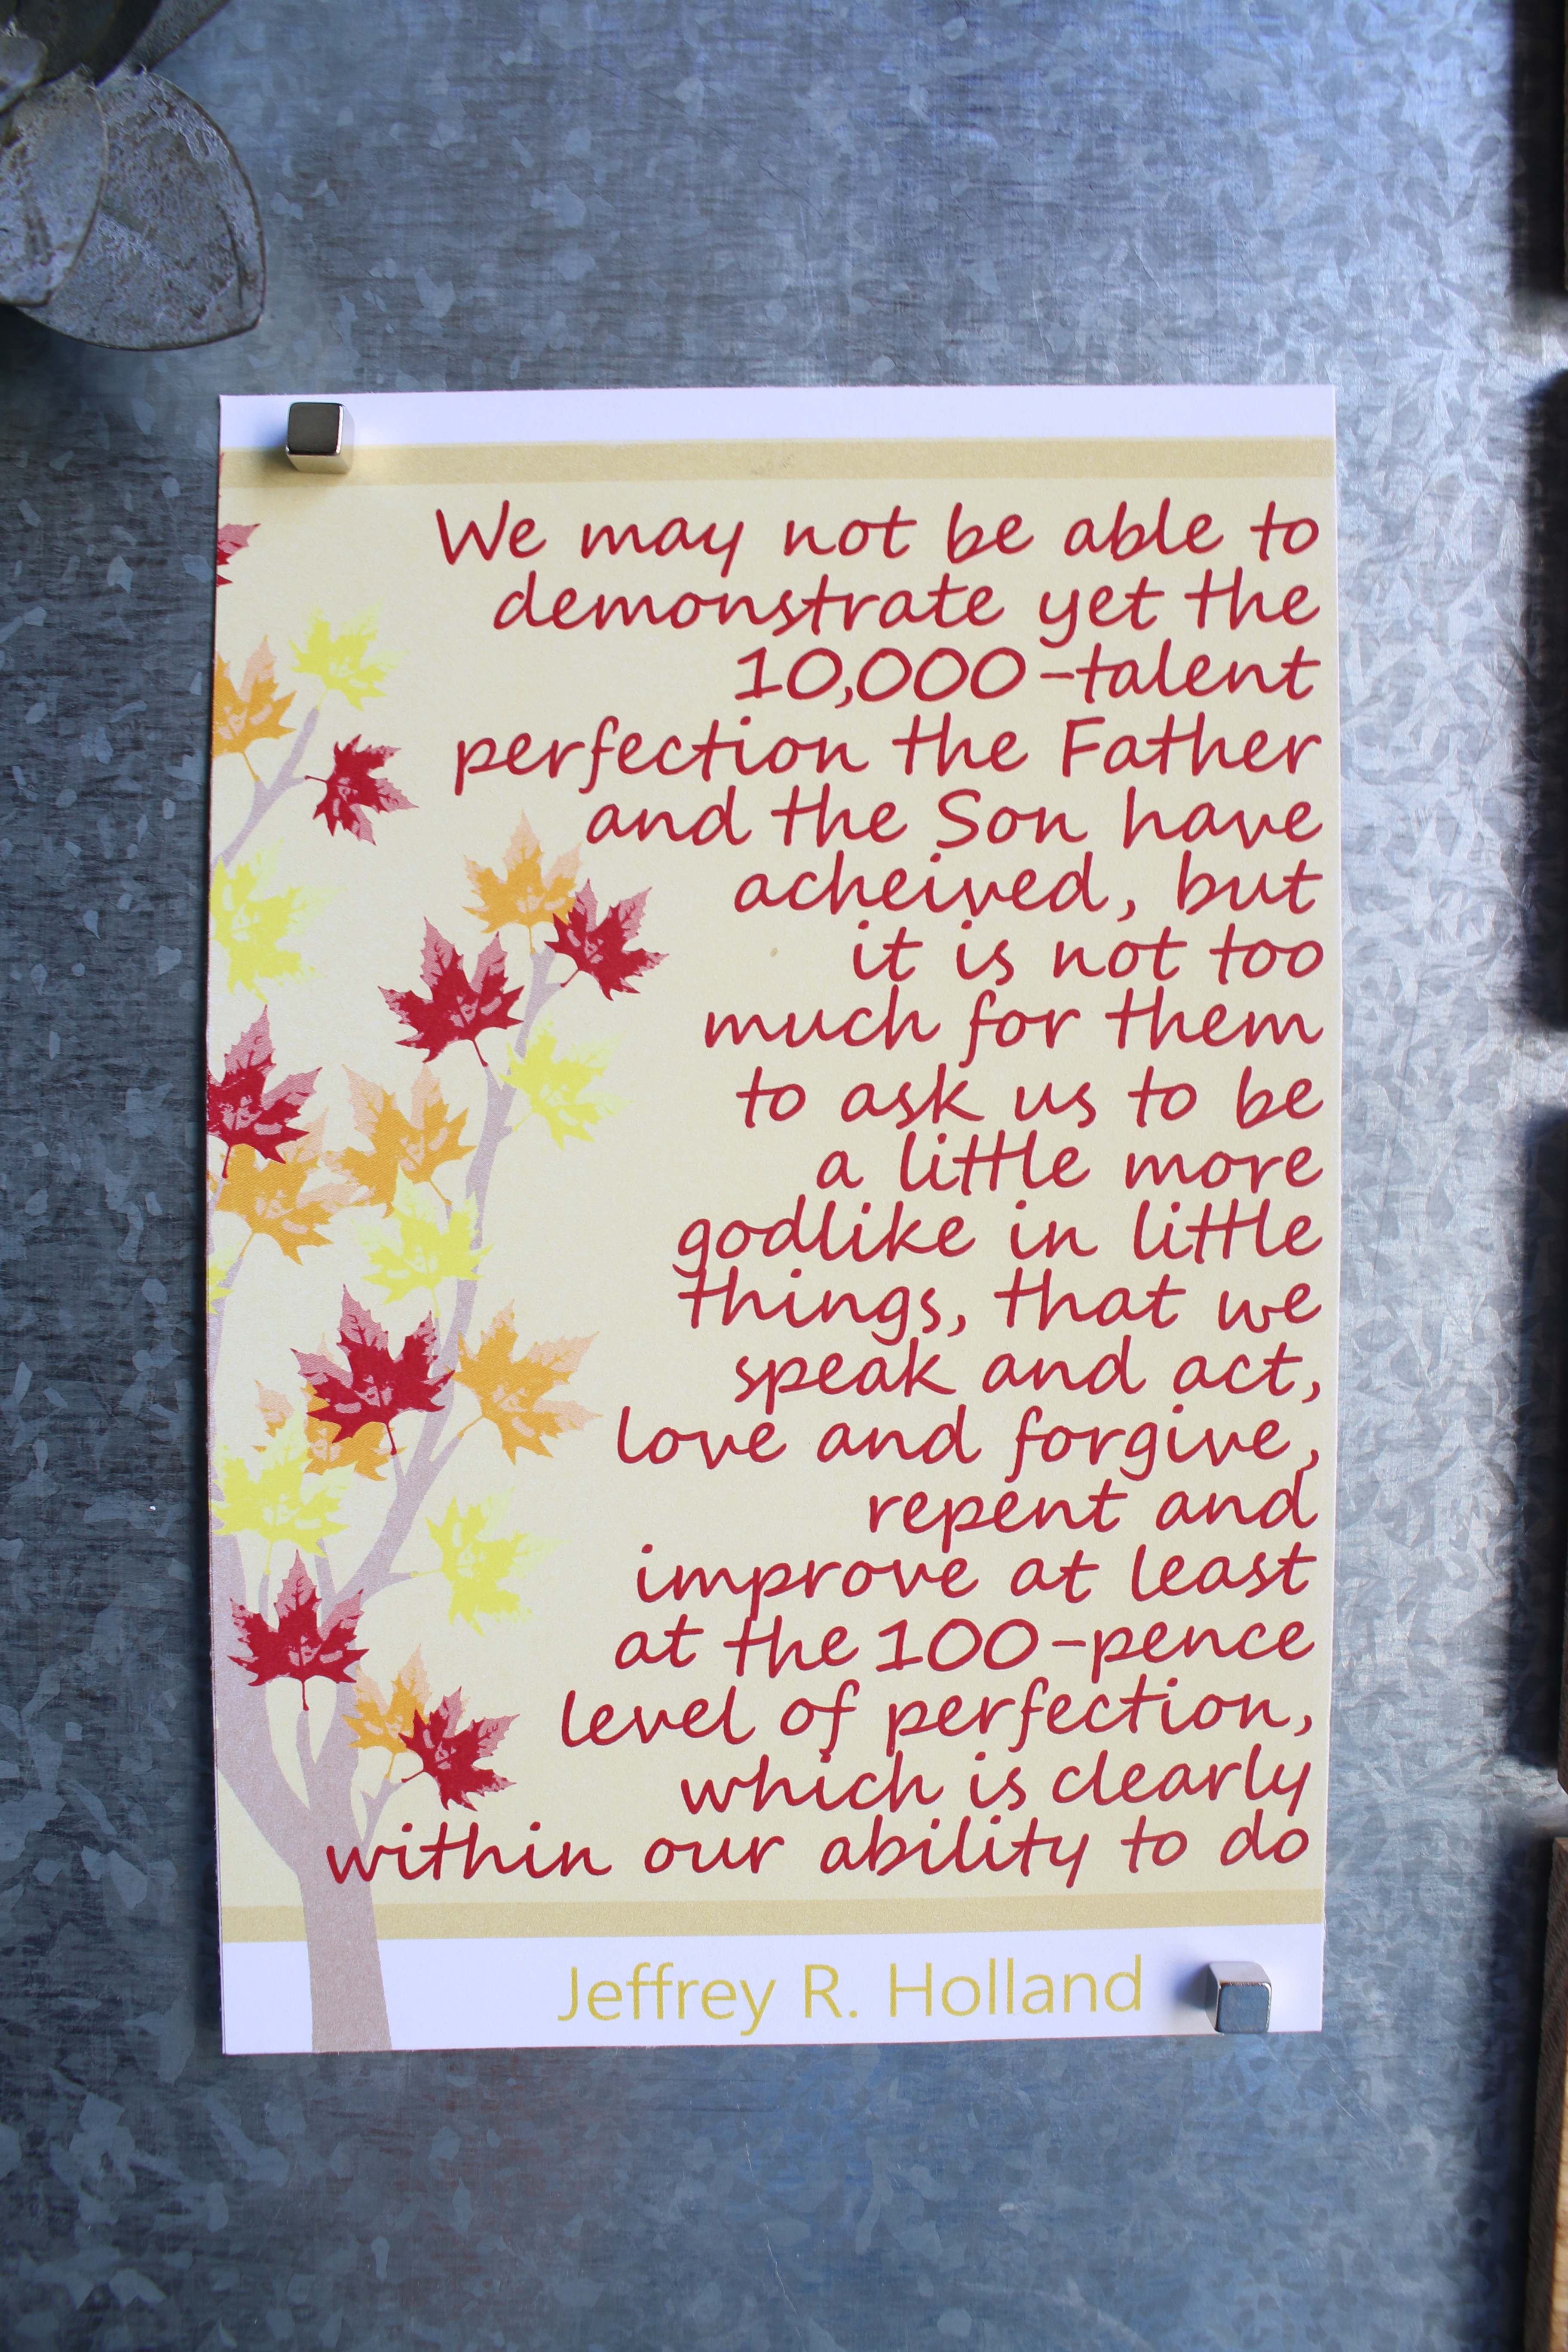 We may not be able to
demonstrate yet the
10,000-talent
perfection the Father
and the Son have
acheived, but
it is not too
much for them
to ask us to be
a little more
godlike in little
things, that we
speak and act,
love and forgive,
repent and
improve at least
at the 100-pence
level of perfection,
which is clearly
within our ability to do
Jeffrey R. Holland